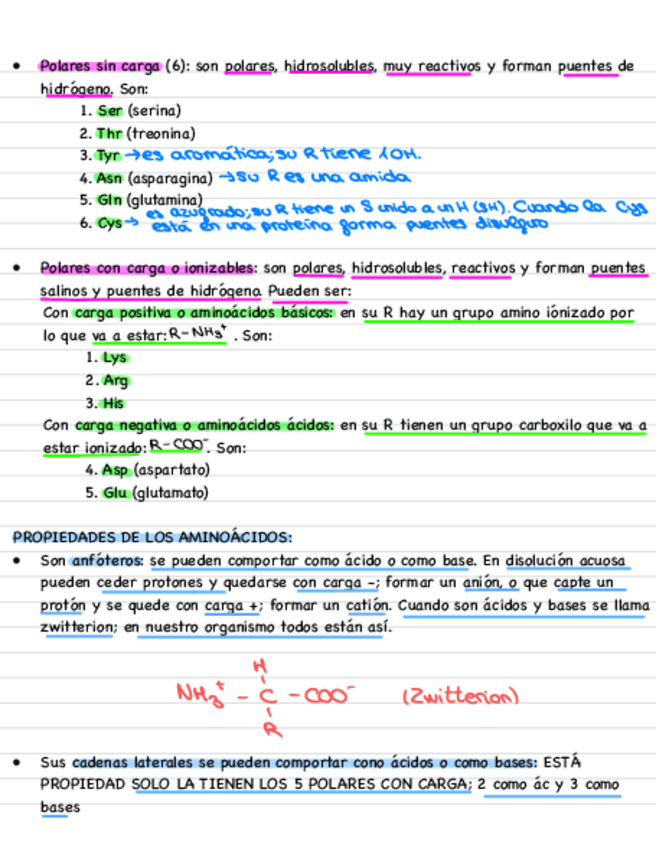 • Polares sin carga (6): son polares, hidrosolubles, muy reactivos y forman puentes de
hidrógeno. Son:
1. Ser (serina)
2. Thr (treonina)
3. Tyr → es aromática; su R tiene 1OH.
4. Asn (asparagina) → su R es una amida
5. Gln (glutamina)
6. Cys → es azufrado; su R tiene un S unido a un H (SH). Cuando la Cys
está en una proteína forma puentes disulfuro
• Polares con carga o ionizables: son polares, hidrosolubles, reactivos y forman puentes
salinos y puentes de hidrógeno. Pueden ser:
Con carga positiva o aminoácidos básicos: en su R hay un grupo amino iónizado por
lo que va a estar: R-NH₃⁺ . Son:
1. Lys
2. Arg
3. His
Con carga negativa o aminoácidos ácidos: en su R tienen un grupo carboxilo que va a
estar ionizado: R-COO⁻. Son:
4. Asp (aspartato)
5. Glu (glutamato)
PROPIEDADES DE LOS AMINOÁCIDOS:
• Son anfóteros: se pueden comportar como ácido o como base. En disolución acuosa
pueden ceder protones y quedarse con carga -; formar un anión, o que capte un
protón y se quede con carga +; formar un catión. Cuando son ácidos y bases se llama
zwitterion; en nuestro organismo todos están así.
H
NH₃⁺ - C - COO⁻ (Zwitterion)
R
• Sus cadenas laterales se pueden comportar cono ácidos o como bases: ESTÁ
PROPIEDAD SOLO LA TIENEN LOS 5 POLARES CON CARGA; 2 como ác y 3 como
bases